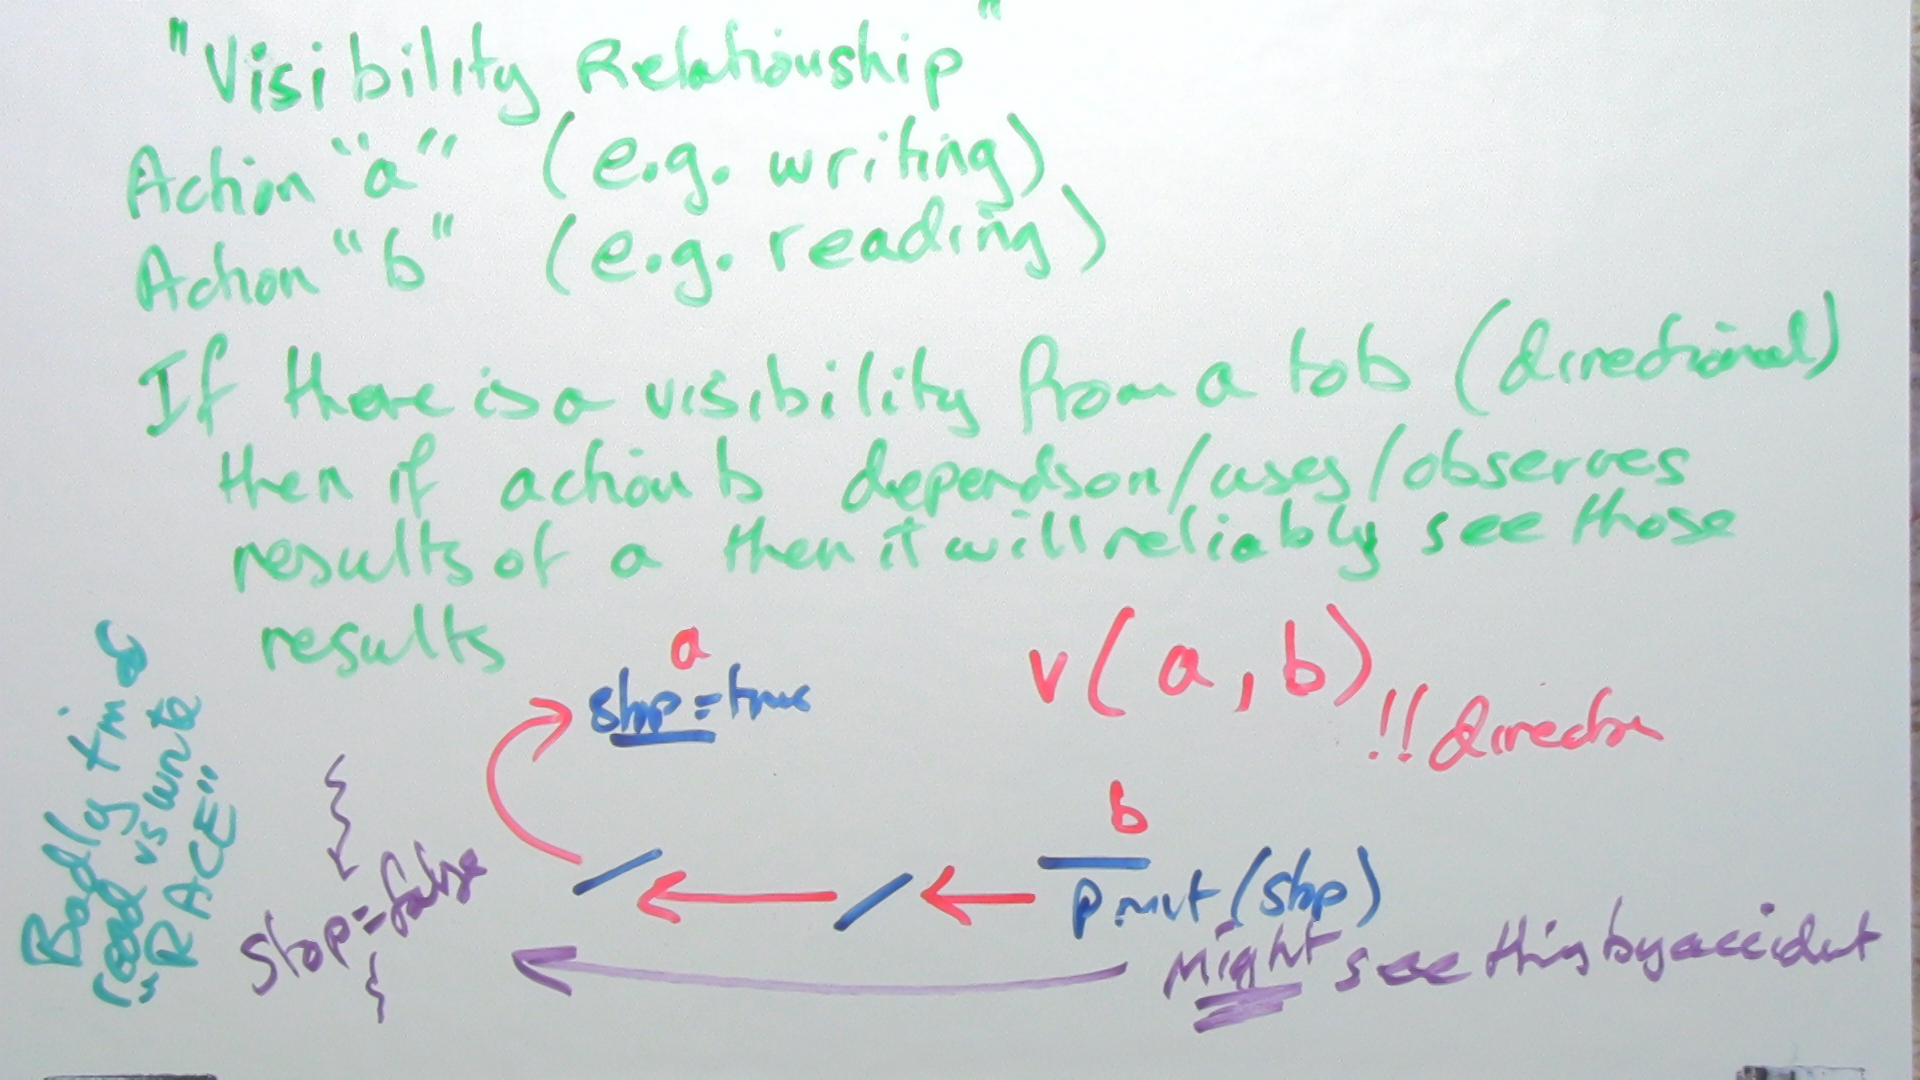 "Visibility Relationship"
Action "a" (e.g. writing)
Action "b" (e.g. reading)
If there is a visibility from a to b (directional)
then if action b depends on/uses/observes
results of a then it will reliably see those
results
a
stop = true
v(a, b)
!! direction
b
print(stop)
stop = false
Might see this by accident
Badly timed
read vs write
"RACE"